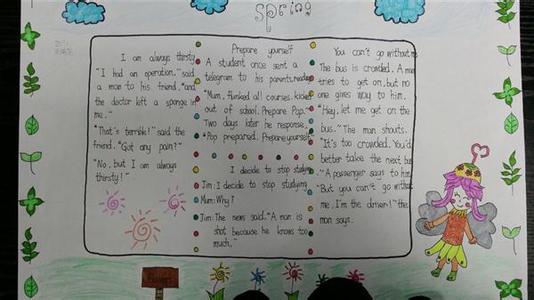 Spring
I am always thirsty
"I had an operation," said
a man to his friend, "and
the doctor left a sponge in
me."
"That's terrible!" said the
friend. "Got any pain?"
"No, but I am always
thirsty!"
Prepare yourself
A student once sent a
telegram to his parents, reading
"Mum, flunked all courses, kicked
out of school. Prepare Pop."
Two days later he response,
"Pop prepared. Prepare yourself."
I decide to stop studying
Jim: I decide to stop studying
Mum: Why?
Jim: The news said. "A man is
shot because he knows too
much."
You can't go without me
The bus is crowded. A man
tries to get on, but no
one gives way to him.
"Hey, let me get on the
bus." The man shouts.
"It's too crowded. You'd
better take the next bus
." A passenger says to him.
"But you can't go without
me. I'm the driver!" the
man says.